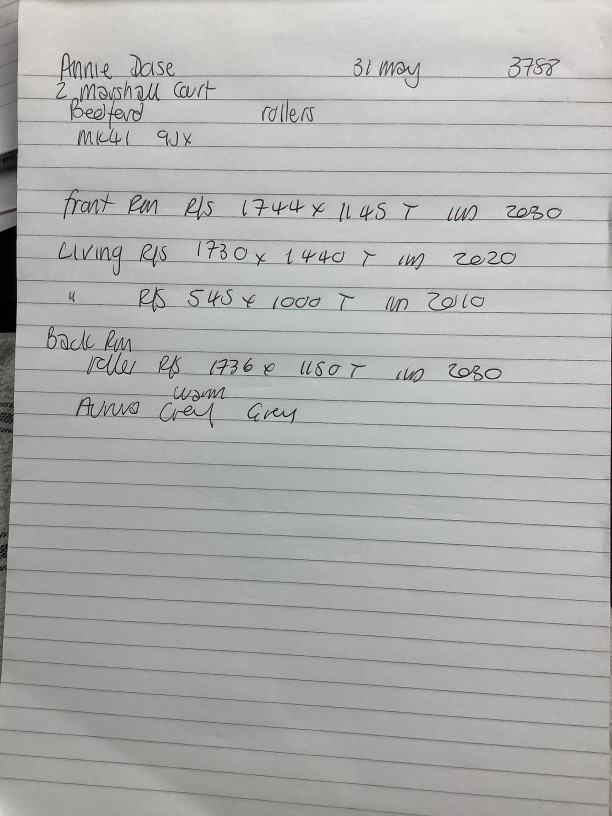 Annie Dase 31 May 3788
2 Marshall Court
Bedford rollers
MK41 9JX
front Rm R/S 1744 x 1145 T 2030
Living R/S 1730 x 1440 T 2020
" R/S 545 x 1000 T 2010
Back Rm
roller R/S 1736 x 1150 T 2030
warm
Grey Grey